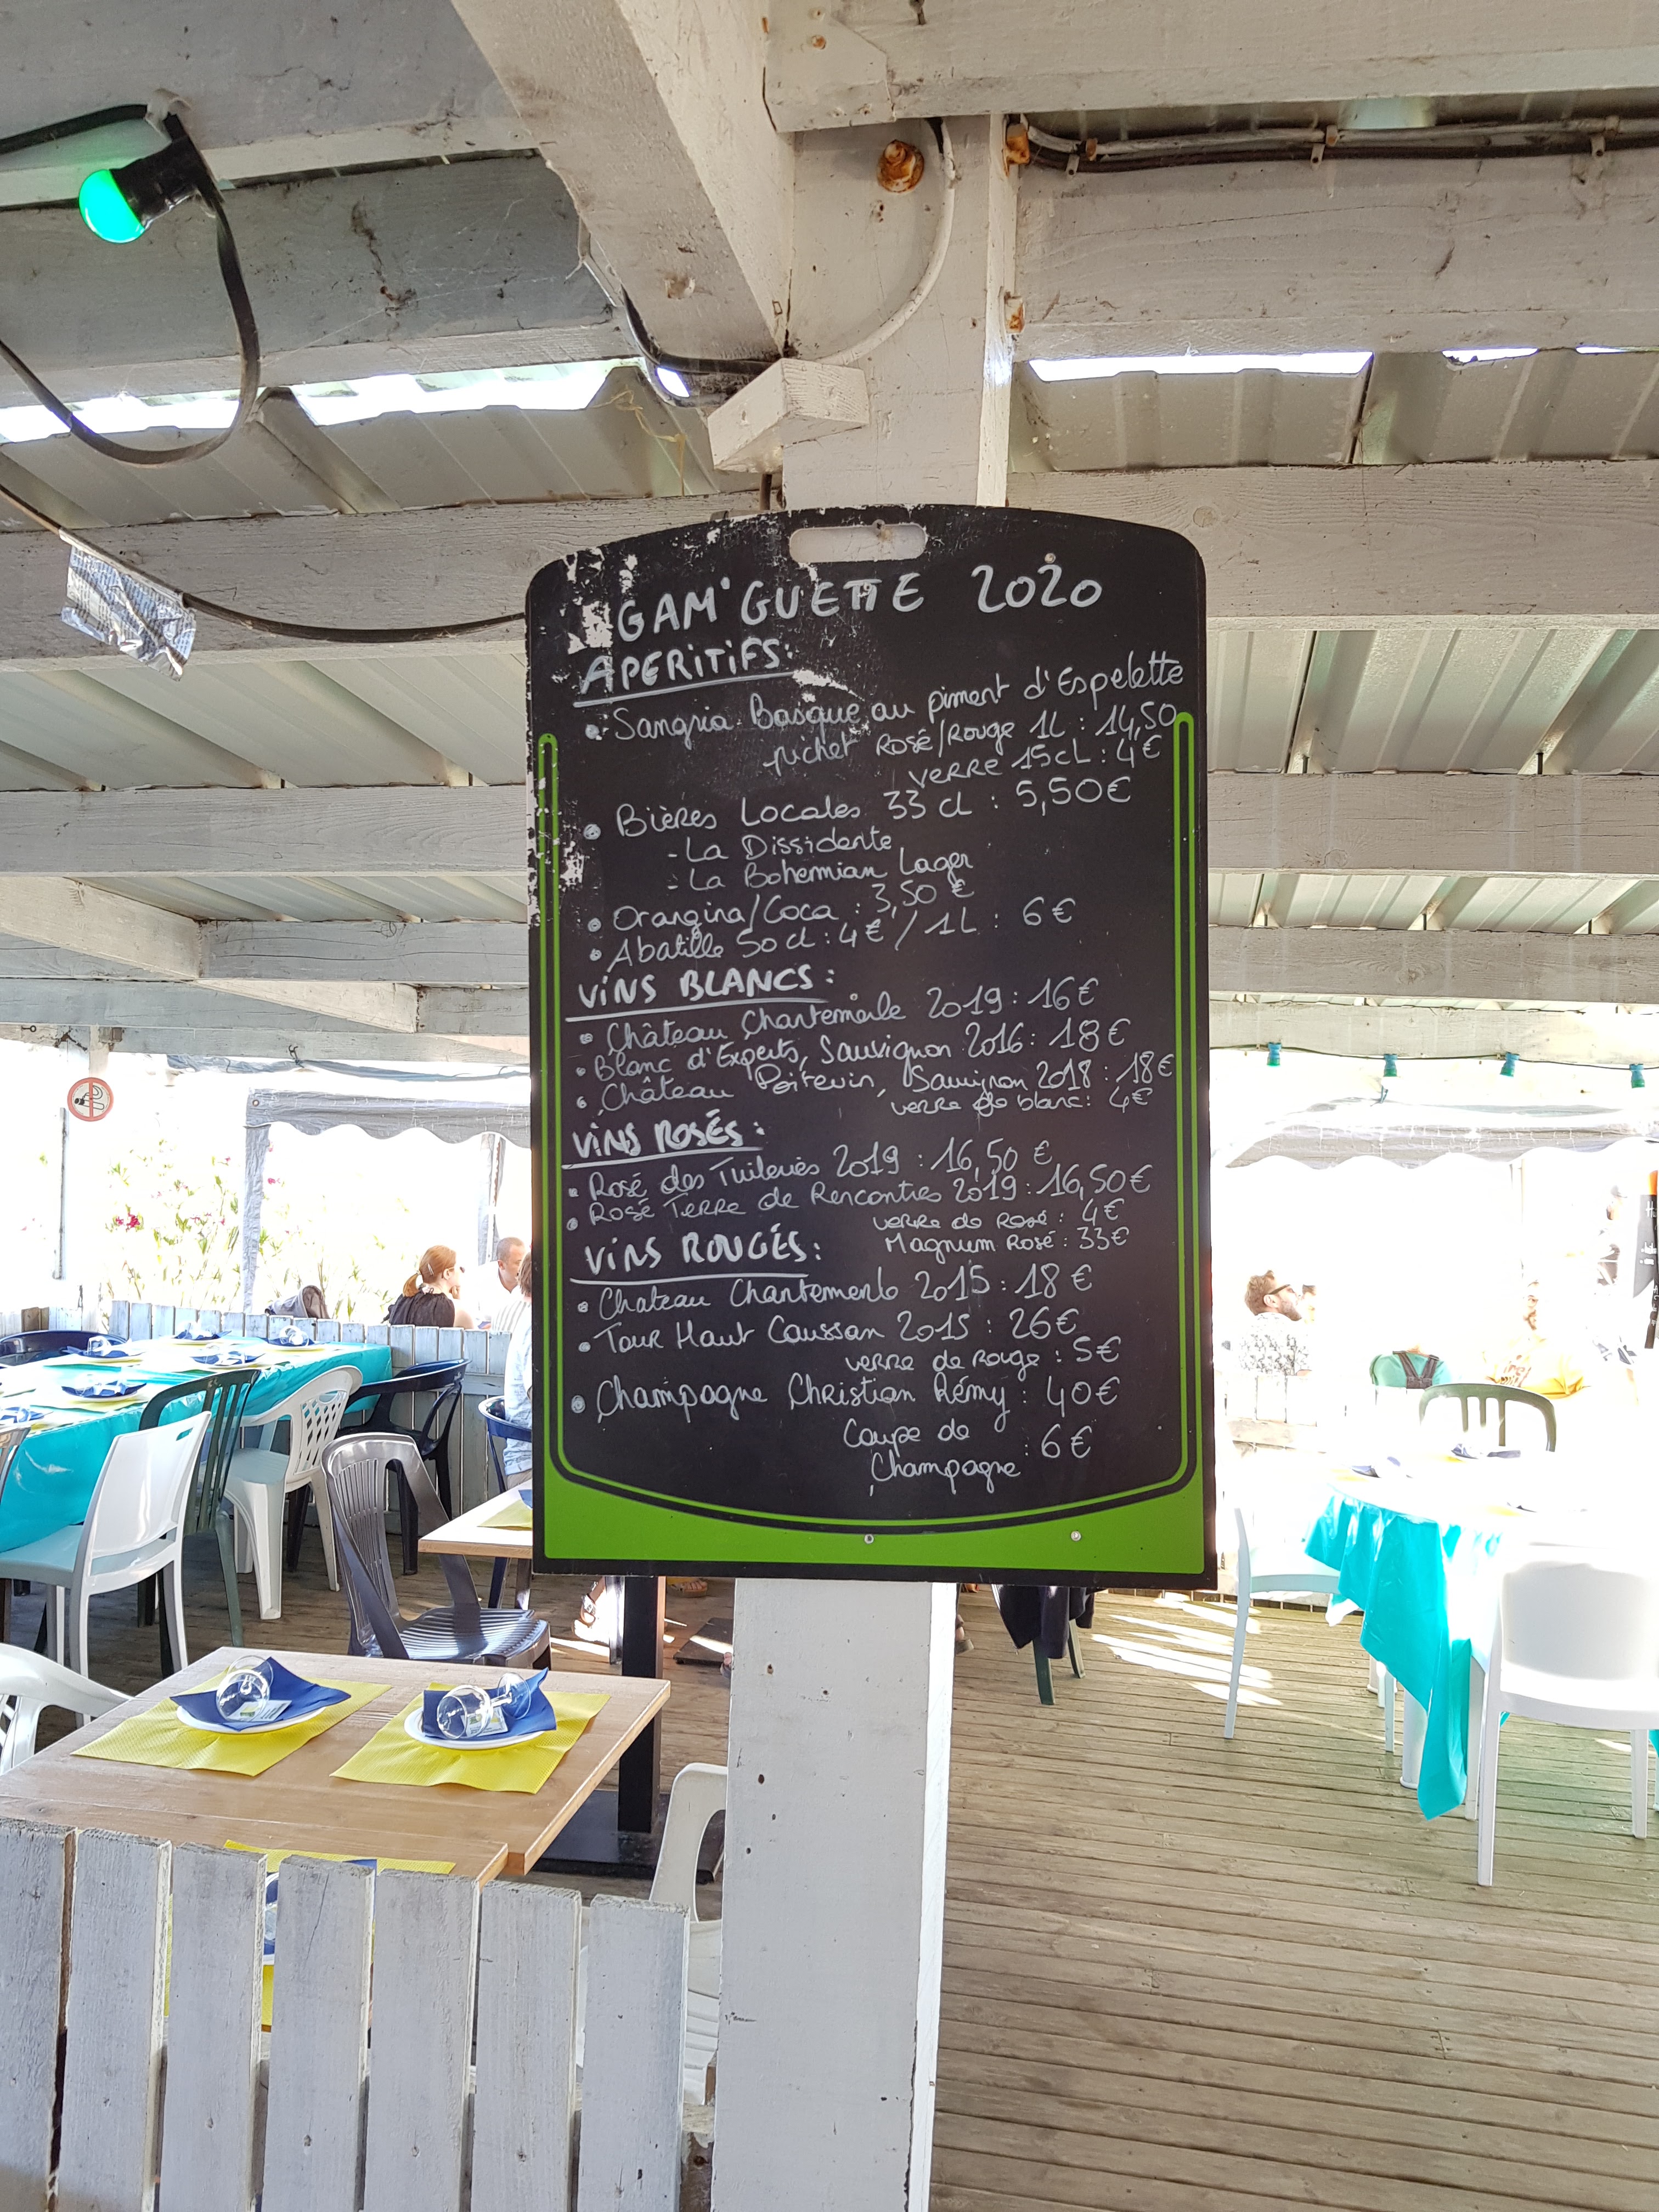 GAM'GUETTE 2020
APERITIFS:
Sangria Basque au piment d'Espelette
pichet Rosé/Rouge 1L : 14,50
verre 15cL : 4€
Bières Locales 33 cl : 5,50€
- La Dissidente
- La Bohemian Lager
Orangina/Coca : 3,50 €
Abatille 50 cl : 4€ / 1L : 6€
VINS BLANCS :
Château Chantemerle 2019 : 16€
Blanc d'Experts, Sauvignon 2016 : 18€
Château Poitevin, Sauvignon 2018 : 18€
verre de blanc : 4€
VINS ROSÉS :
Rosé des Tuileries 2019 : 16,50 €
Rosé Terre de Rencontres 2019 : 16,50€
verre de Rosé : 4€
Magnum Rosé : 33€
VINS ROUGES :
Chateau Chantemerle 2015 : 18 €
Tour Haut Caussan 2015 : 26€
verre de Rouge : 5€
Champagne Christian Rémy : 40€
Coupe de
Champagne : 6€